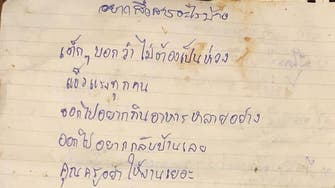 อยากสื่อสารอะไรบ้าง
เด็กๆ บอกว่า ไม่ต้องเป็นห่วง
แข็งแรงทุกคน
ออกไปอยากกินอาหารหลายอย่าง
ออกไปอยากกลับบ้านเลย
คุณครูอย่า ให้งานเยอะ